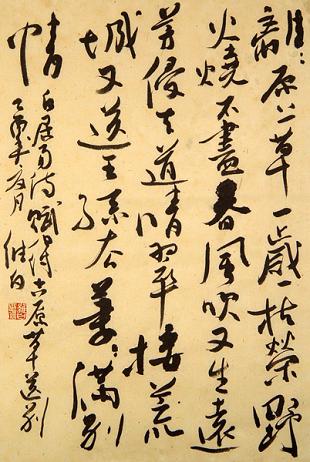 離々原上草一歲一枯榮野
火燒不盡春風吹又生遠
芳侵古道晴翠接荒
城又送王孫去萋々滿別
情
白居易詩賦得古原草送別